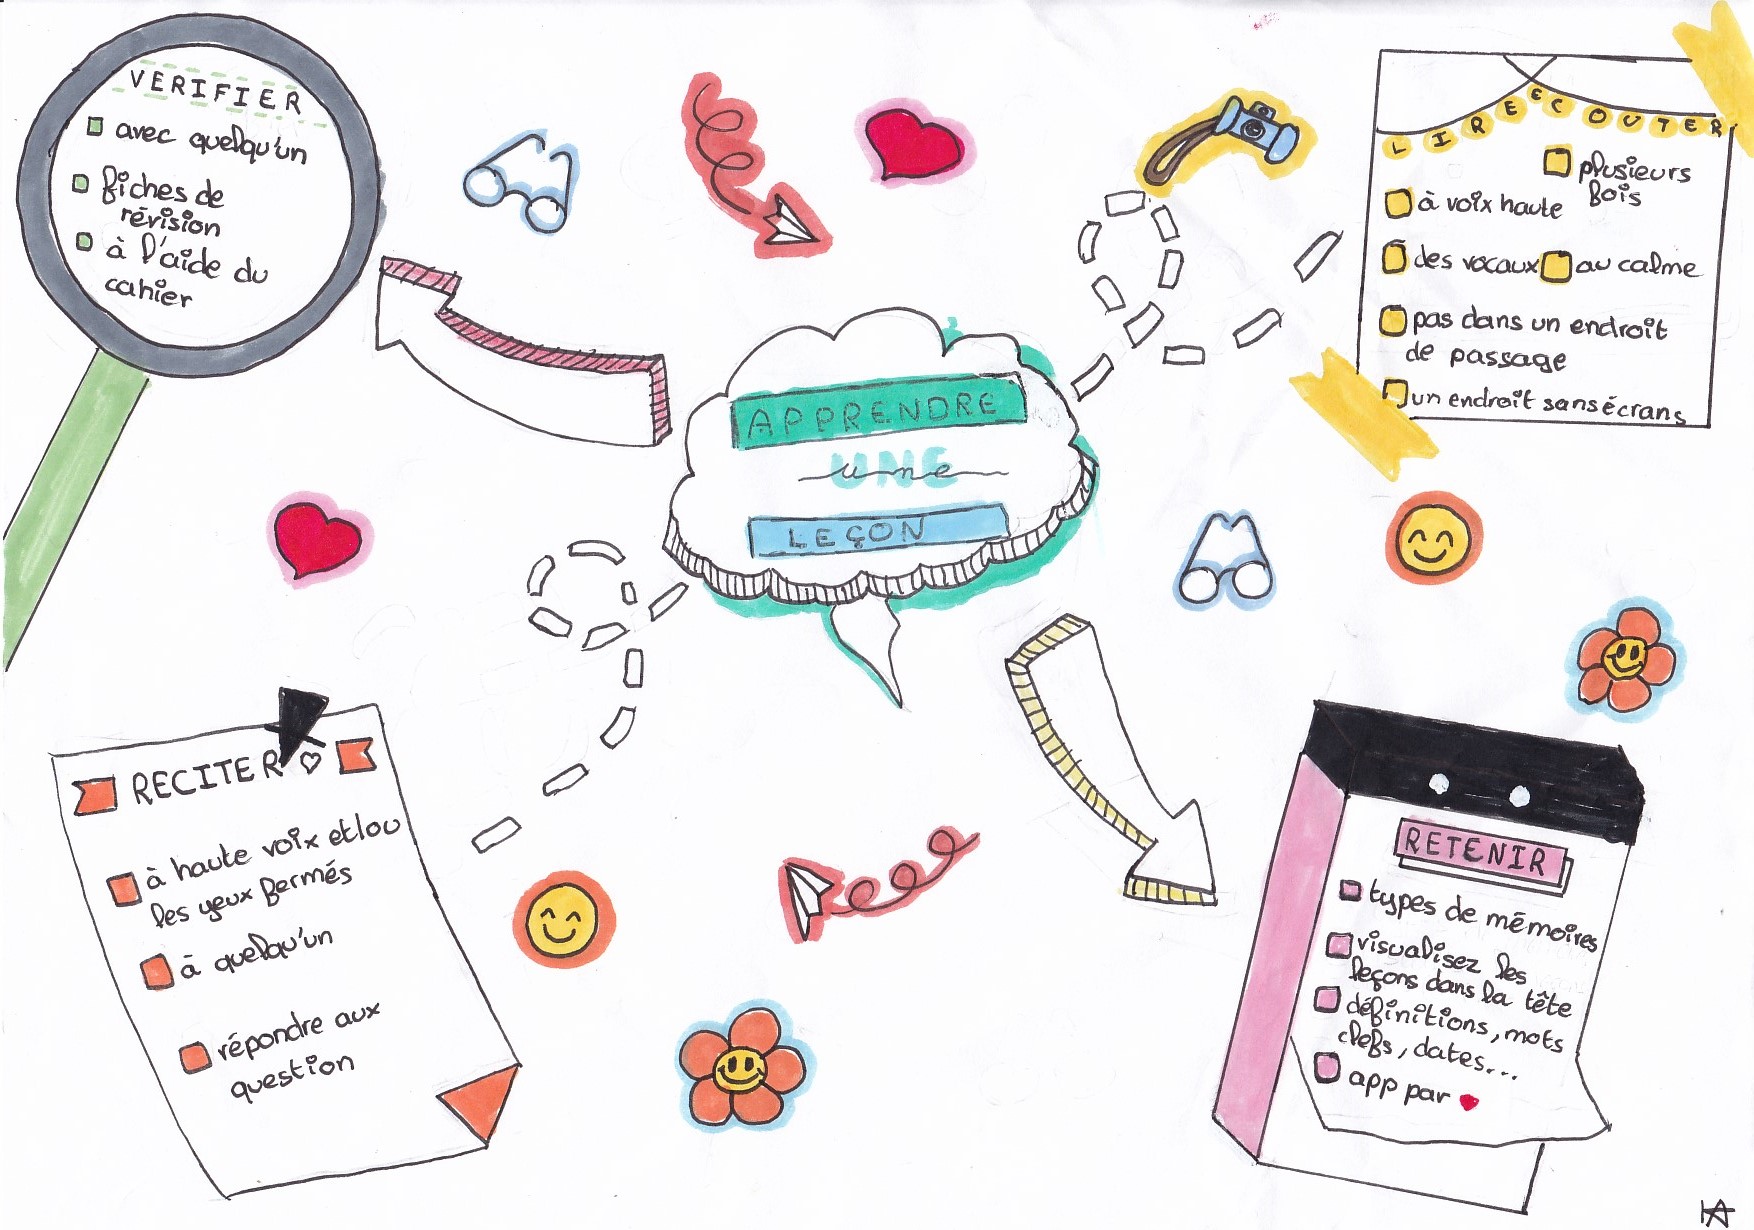 VERIFIER
avec quelqu'un
fiches de
révision
à l'aide du
cahier
LIRE ECOUTER
plusieurs
fois
à voix haute
des vocaux
au calme
pas dans un endroit
de passage
un endroit sans écrans
APPRENDRE
une
LEÇON
RECITER
à haute voix et/ou
les yeux fermés
à quelqu'un
répondre aux
question
RETENIR
types de mémoires
visualisez les
leçons dans la tête
définitions, mots
clefs, dates...
app par ♥